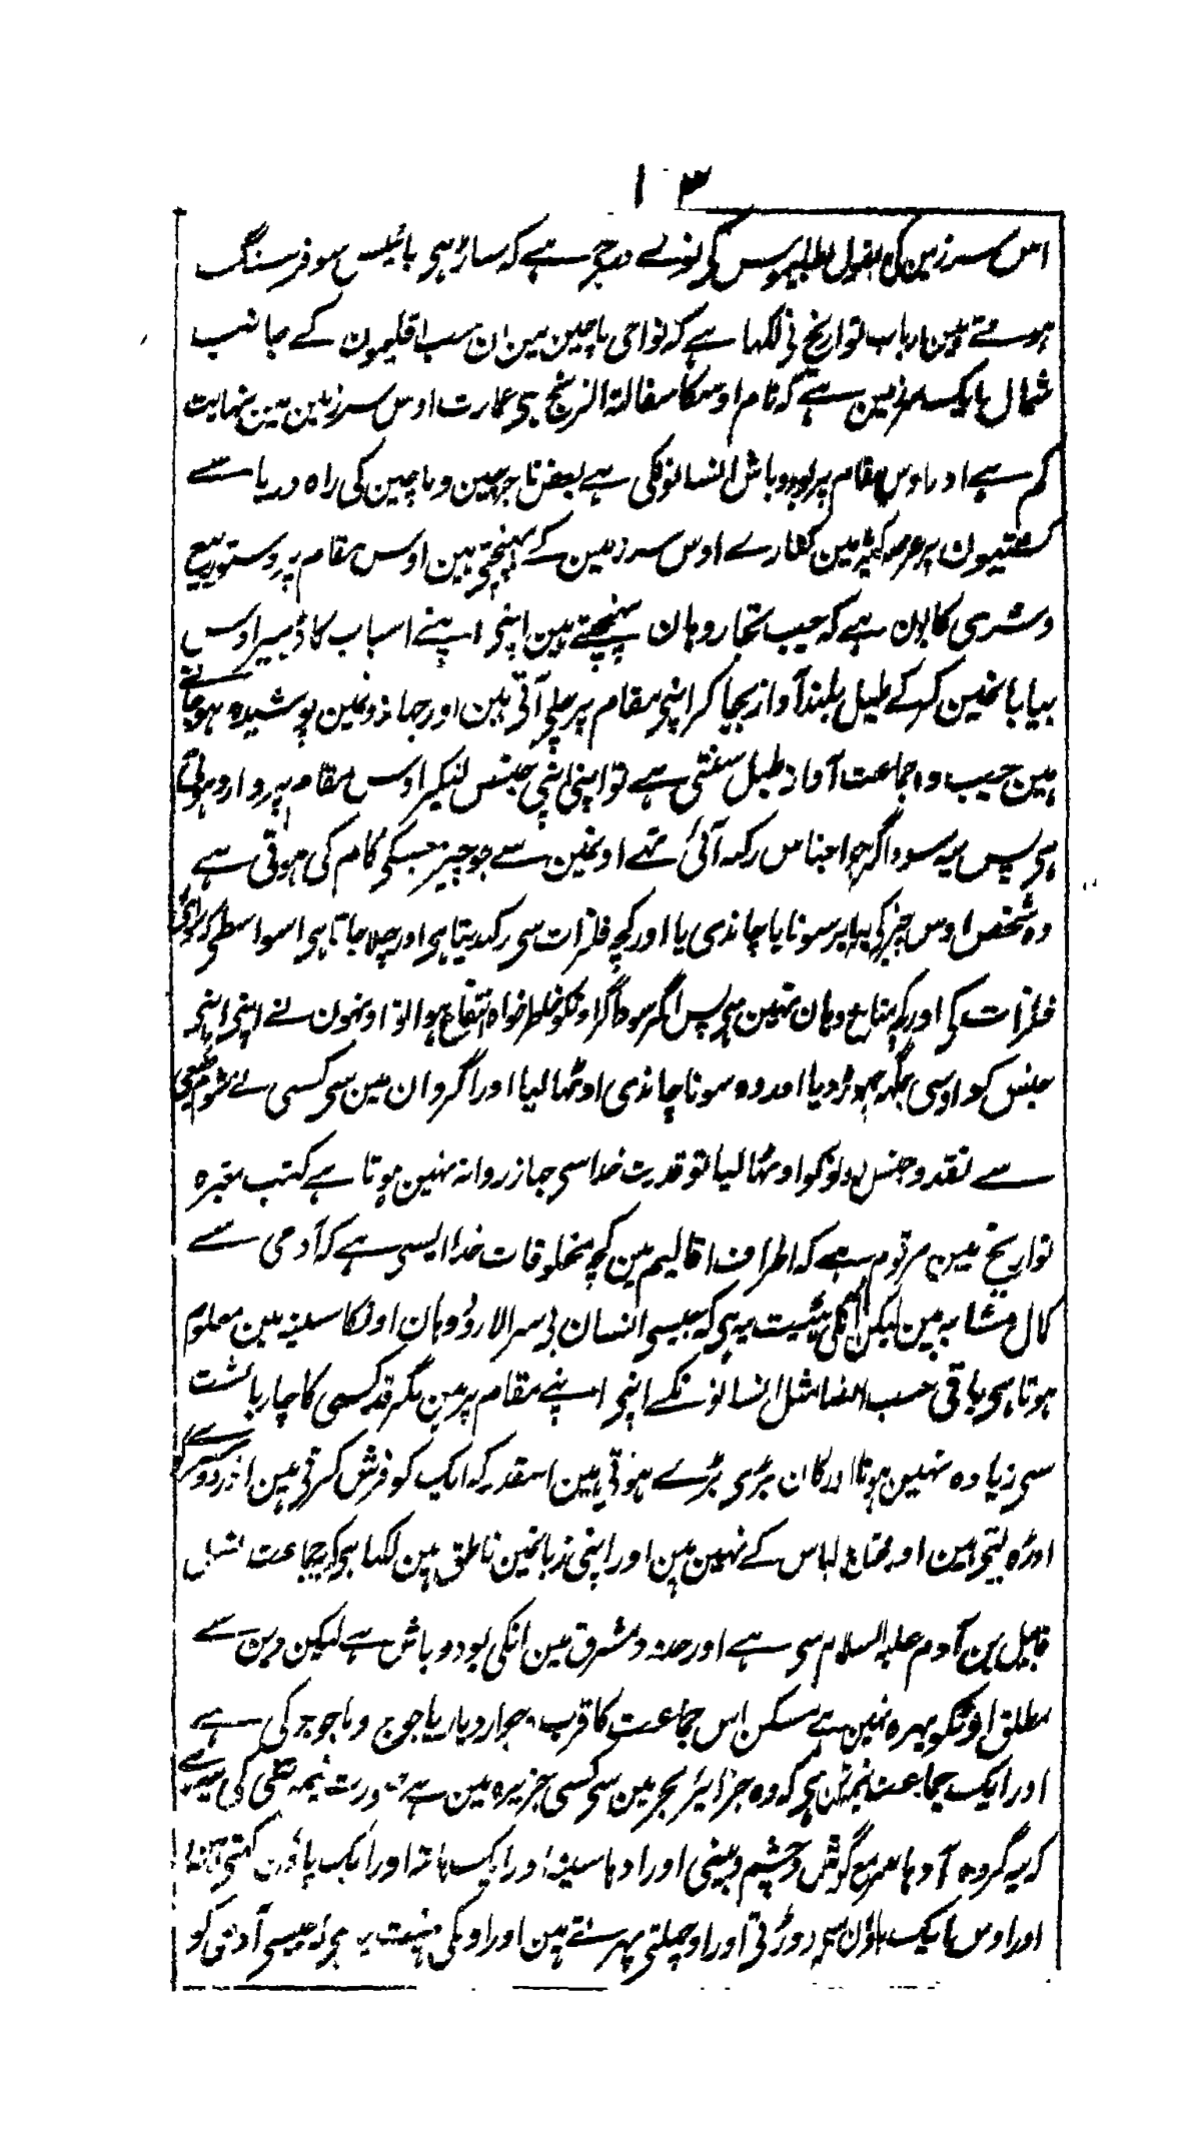 ۱۳
اس سرزمین کی بقول بطلیموس کی نوے درجہ ہے کہ ساڑہی بائیس سو فرسنگ
ہوتے ہین ارباب تواریخ نی لکہا ہے کہ نواحی ماچین مین ان سب اقلیمون کے جانب
شمال ایک سرزمین ہے کہ نام اوسکا سفالۃ الزنج ہی عمارت اوس سرزمین مین نہایت
کم ہے اور اوس مقام پر بودوباش انسانونکی ہے بعض تاجر چین و ماچین کی راہ دریا سے
کشتیون پر عرصہ مین کنارے اوس سرزمین کے پہنچتی ہین اوس مقام پر دستور بیع
و شری کا یون ہے کہ جب تجار وہان پہنچتے ہین اپنی اپنے اسباب کا ڈہیر اوس
بیابانمین کر کے طبل بلند آواز بجا کر اپنی مقام پر چلی آتی ہین اور جہازونمین پوشیدہ ہو جاتے
ہین جب وہ جماعت آواز طبل سنتی ہے تو اپنی اپنی جنس لیکر اوس مقام پر وارد ہوتی
ہی پس یہ سوداگر جو اجناس رکہ آئی تہے اونمین سے جو چیز جسکی کام کی ہوتی ہے
وہ شخص اوس چیز کی برابر سونا یا چاندی یا اور کچہ فلزات سی رکہدیتا ہی اور چلا جاتا ہی اسواسطی کہ سوای
فلزات کی اور کچہ متاع وہان نہین ہی پس اگر سوداگر اونکو خاطر خواہ انتفاع ہوا تو اونہون نے اپنی اپنی
جنس کو اوسی جگہ چہوڑ دیا اور وہ سونا چاندی اوٹہا لیا اور اگر وان مین سی کسی نے شوم طبعی
سے نقد و جنس دونوکو اوٹہا لیا تو قدرت خدا سی جاز روانہ نہین ہوتا ہے کتب معتبرہ
تواریخ مین مرقوم ہے کہ اطراف اقالیم مین کچہ مخلوقات خدا ایسی ہے کہ آدمی سے
کمال مشابہ ہین لیکن انکی ہئیت یہ ہی کہ جیسی انسان بی سر الا رو و دہان اونکا سینہ مین معلوم
ہوتا ہی باقی سب اعضا مثل انسانونکے اپنی اپنے مقام پر ہین مگر قد کسی کا چار بالشت
سی زیادہ نہین ہوتا اور کان بڑی بڑے ہوتی ہین اسقدر کہ ایک کو فرش کرتی ہین اور دوسرے کو
اوڑہ لیتی ہین اور محتاج لباس کے نہین ہین اور اپنی زبانمین ناطق ہین لکہا ہی کہ یہ جماعت نسل
قابیل بن آدم علیہ السلام سی ہے اور حدود مشرق مین انکی بودوباش ہے لیکن دین سے
مطلق اونکو بہرہ نہین ہے مسکن اس جماعت کا قرب و جوار دیار یاجوج و ماجوج کی ہے
اور ایک جماعت نیم تن ہی کہ وہ جزائر بحر مین سی کسی جزیرہ مین ہے صورت نیم تنی کی یہ ہے
کہ یہ گروہ آدہا سر مع گوش و چشم و بینی اور آدہا سینہ اور ایک ہاتہ اور ایک پاؤن رکہتی ہین
اور اوس ایک پاؤن سی دوڑتی اور اوچہلتی پہرتے ہین اور اونکی ہئیت یہ ہی کہ جیسی آدمی کو